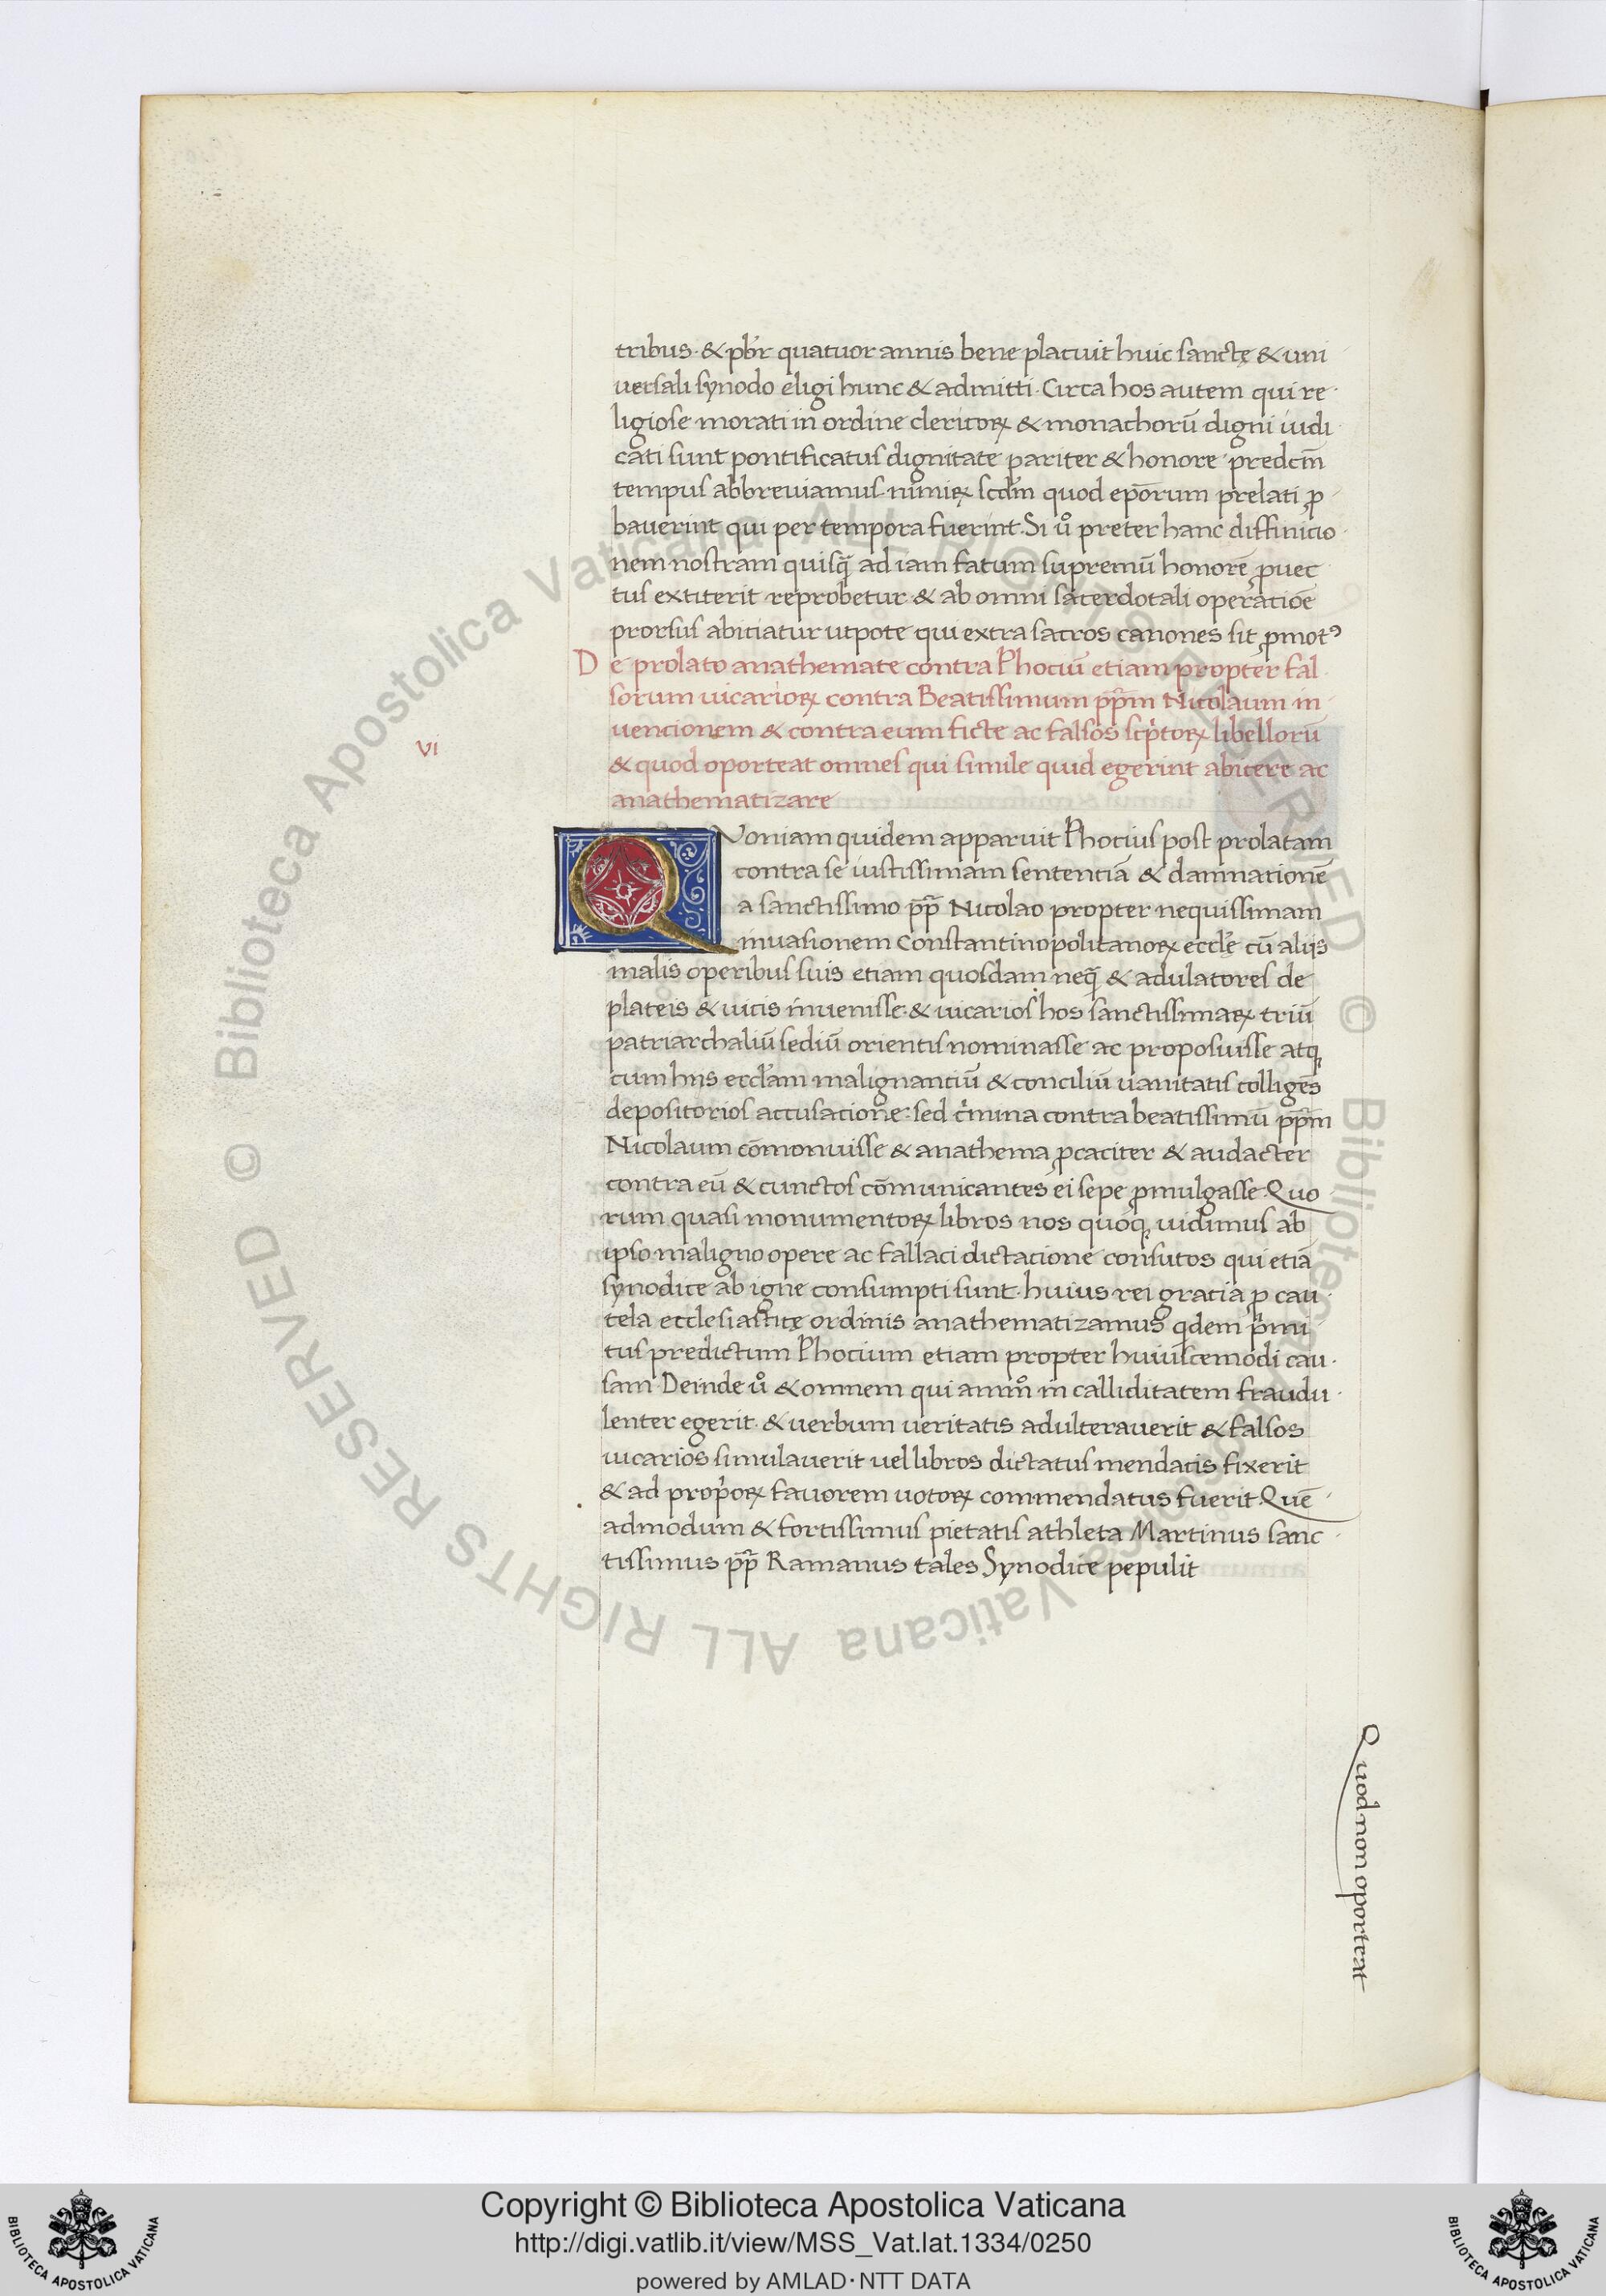 tribus· & pb̄r quatuor annis bene placuit huic sanctę & uni
uersali synodo eligi hunc & admitti · Circa hos autem qui re·
ligiose morati in ordine clericoꝝ & monachorū digni iudi·
cati sunt pontificatus dignitate pariter & honore · predcm̄
tempus abbreuiamus· nimiꝝ scdm̄ quod epōrum prelati ꝓ·
bauerint qui per tempora fuerint· Si uº preter hanc diffinicio·
nem nostram quisq̄ ad iam fatum supremū honorē ꝓuec
tus extiterit reprobetur · & ab omni sacerdotali operatiōe
prorsus abiciatur utpote qui extra sacros canones sit ꝓmotꝰ
De prolato anathemate contra Phociū etiam propter fal
sorum uicarioꝝ contra Beatissimum pp̄m Nicolaum in
uencionem & contra eum ficte ac falsos scp̄toꝝ libellorū
VI
& quod oporteat omnes qui simile quid egerint abicere ac
anathematizare
Quoniam quidem apparuit Phocius post prolatam
contra se iustissimam sententiā & damnationē
a sanctissimo pp̄ Nicolao propter nequissimam
inuasionem Constantinopolitanoꝝ eccle̓ cū aliis
malis operibus suis etiam quosdam neq̄ & adulatores de
plateis & uicis inuenisse· & uicarios hos sanctissimaꝝ triū
patriarchaliū sediū orientis nominasse ac proposuisse atq;
cum hiis eccl̓am malignanciū & conciliū uanitatis colligēs
depositorios accusacione: sed cͥmina contra beatissimū pp̄m
Nicolaum cōmonuisse & anathema ꝓcaciter & audacter
contra eū & cunctos cōmunicantes ei sepe ꝓmulgasse· Quo
rum quasi monumentoꝝ libros nos quoq; uidimus ab
ipso maligno opere ac fallaci dictacione consutos qui etiā
synodice ab igne consumpti sunt· huius rei gratia ꝓ cau·
tela ecclesiasticę ordinis anathematizamus qͥdem pͥmi
tus predictum Phocium etiam propter huiuscemodi cau·
sam· Deinde uº & omnem qui amm̊ in calliditatem fraudu·
lenter egerit· & uerbum ueritatis adulterauerit & falsos
uicarios simulauerit uel libros dictatus mendacis fixerit
& ad propͥoꝝ fauorem uotoꝝ commendatus fuerit· Quē·
admodum & fortissimus pietatis athleta Martinus sanc·
tissimus pp̄ Ramanus tales Synodice pepulit
Quod non oporteat
© Biblioteca Apostolica Vaticana ALL RIGHTS RESERVED © Biblioteca Apostolica Vaticana ALL RIGHTS RESERVED
Copyright © Biblioteca Apostolica Vaticana
http://digi.vatlib.it/view/MSS_Vat.lat.1334/0250
powered by AMLAD·NTT DATA
BIBLIOTECA APOSTOLICA VATICANA
BIBLIOTECA APOSTOLICA VATICANA